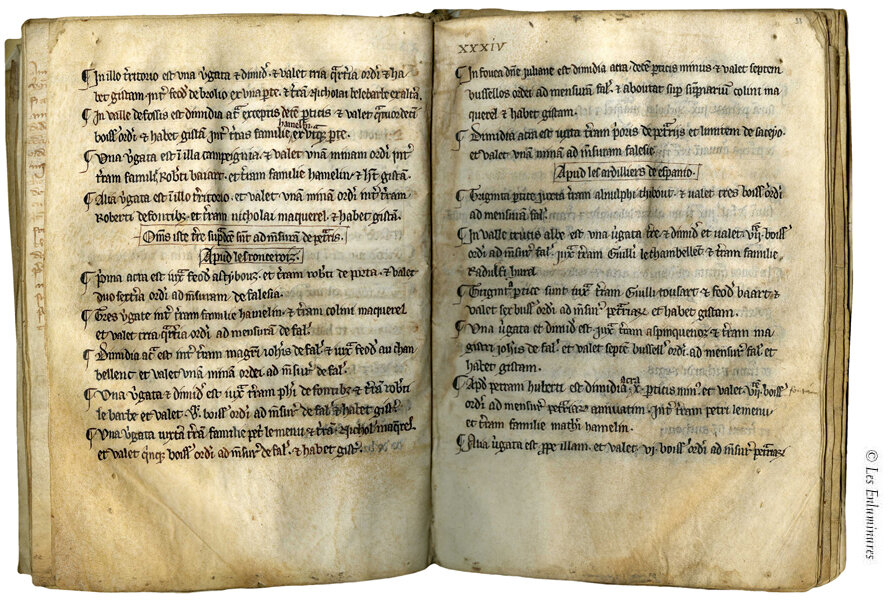 ¶ In illo t̃ritorio est una v̓gata ⁊ dimid̓. ⁊ valet tria q̃rt̃ia ordi ⁊ ha
bet gistam. int̓ feod̓ de brolio ex una p̃te. ⁊ t̃rã Nicholai
¶ In valle de fossis est dimidia ac̃ exceptis decẽ p̃ticis ⁊ valet
boiss̓ ordi ⁊ habet gistã int̓ t̃ras familie hamel̓. ex utq̃ p̃te.
¶ Una v̓gata est ĩ illa campeignia. ⁊ valet unã minam ordi int̓
t̃ram famil̓ Rob̓ti baiart. et t̃ram familie hamelin ⁊ h̓t gistã.
¶ Alia v̓gata est ĩ illo t̓ritorio. et valet unã minã ordi int̓ t̓ram
Roberti de fontib̓z. et t̓ram nicholai maquerel. ⁊ habet gistã.
Om̃s iste t̓re sup̃dc̃e sũt ad m̃surã de pet̓ris.
Apud les ronceroiz.
¶ P̓ma acra est iux̃ feod̓ ⁊ t̓ram rob̓ti de porta. ⁊ valet
duo sext̓ia ordi ad m̃suram de falesia.
¶ Tres v̓gate int̓ t̓ram familie hamelin. ⁊ t̓ram colini maquerel
et valet tria q̃rt̓ia ordi ad mensurã de fal̓.
¶ Dimidia ac̃ est int̓ t̓ram mag̃ri joh̃is de fal̓ ⁊ iux̃ feod̓ au chan
bellenc et valet unã minã ordei ad m̃sur̓ de fal̓.
¶ Una v̓gata ⁊ dimid̓ est iux̃ t̓ram ph̓i de fontib̓z ⁊ t̓rã rob̓ti
le barbe et valet . boiss̓ ordei ad m̃sur̓ de fal̓ ⁊ habet gist̓.
¶ Una v̓gata iuxta t̓rã familie pet̓ le menu ⁊ t̓rã Nichol̓ maq̃rel.
et valet qinq̓ boiss̓ ordi ad m̃sur̓ de fal̓. ⁊ habet gist̓.
XXXIV
¶ In fovea dñe juliane est dimidia acra. decẽ p̃ticis minus ⁊ valet septem
bussellos ordei ad mensuram fal̓. ⁊ aboutat sup̓ colini ma
querel ⁊ habet gistam.
¶ Dimidia acra est iuxta t̓ram p̓oris de pet̓ris ⁊ limitem de
et valet unã minã ad m̃suram falesie.
Apud les ardilliers de espanio.
¶ Triginta p̃tice juxta t̓ram arnulphi thibout. ⁊ valet tres boiss̓ ordi
ad mensuram fal̓.
¶ In valle crucis albe est una v̓gata t̓re ⁊ dimid̓ et valet vij. boiss̓
ordi ad m̃sur̓ fal̓. iux̃ t̓ram Guill̓i le chambellenc. et t̓ram familie
Radulfi hurel.
¶ Triginta p̃tice sunt iux̃ t̓ram Guill̓i tousart ⁊ feod̓ baart. ⁊
valet sex buss̓ ordi ad m̃sur̓ pet̓riaz̓ et habet gistam.
¶ Una v̓gata et dimid̓ est iux̃ t̓ram ⁊ t̓ram ma
gistri joh̃is de fal̓. et valet septẽ bussell̓ ordi. ad mensur̓ fal̓ et
habet gistam.
¶ Ap̓d petram huberti est dimidia acra x. p̃ticis min̓ et valet vij. boiss̓
ordi ad mensur̓ petriaz̓ annuatim. Int̓ t̓ram petri le menu
et t̓ram familie math̓i hamelin.
¶ Alia v̓gata est p̃pe illam. et valet. vj. boiss̓ ordi ad m̃sur̓ pet̓riaz̓
© Les Enluminures